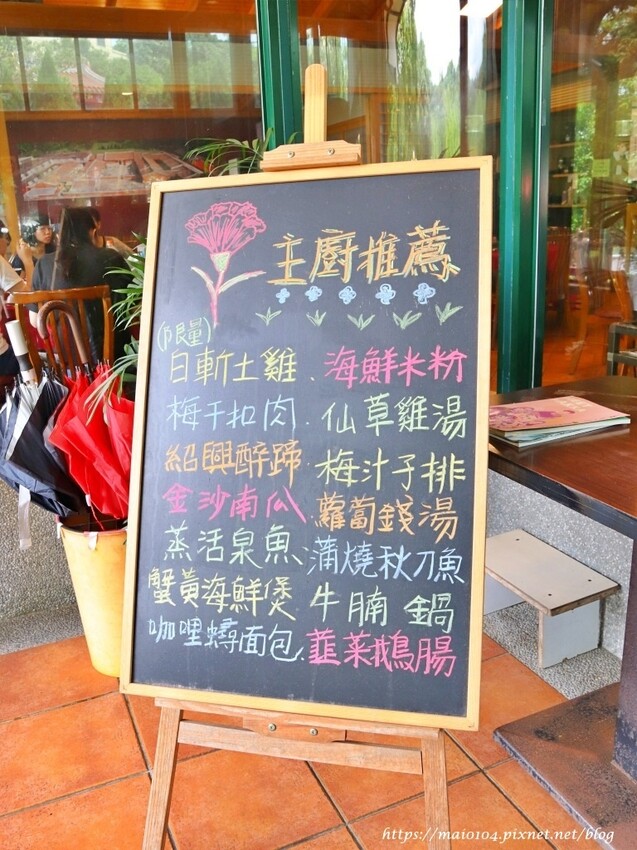 主廚推薦
(限量)
白斬土雞、海鮮米粉
梅干扣肉、仙草雞湯
紹興醉蹄、梅汁子排
金沙南瓜、蘿蔔錢湯
蒸活泉魚、蒲燒秋刀魚
蟹黃海鮮煲 牛腩鍋
咖哩蟳面包、韮菜鵝腸
https://maio104.pixnet.net/blog